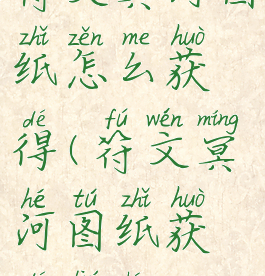 zhǐ zěn me huò
纸怎么获
dé fú wén míng
得(符文冥
hé tú zhǐ huò
河图纸获